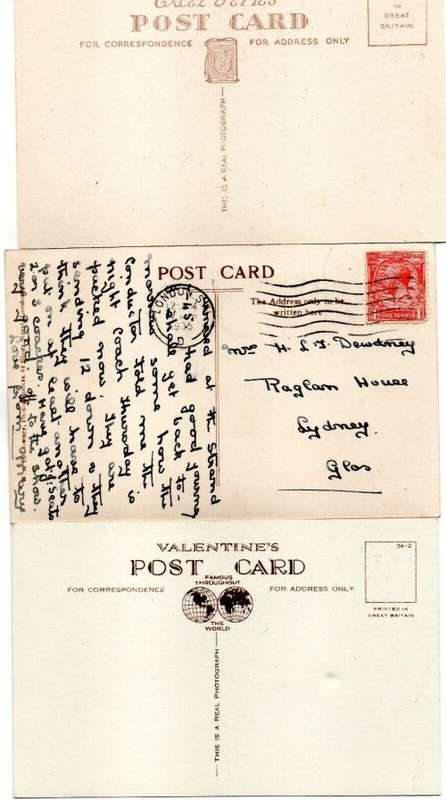 POST CARD
IN
GREAT
BRITAIN
FOR CORRESPONDENCE
FOR ADDRESS ONLY
THIS IS A REAL PHOTOGRAPH
POST CARD
The Address only to be
written here
LONDON
ONE PENNY
Arrived at the Strand
Had good Journey
shall get back to-
morrow some how. The
Conductor told me the
night Coach Thursday is
packed now. They are
sending 12 down & they
think they will have to
put on at least another
2 or 3 coaches. Have got Seats
off to the show.
love from
Mrs H. L. J. Dewdney
Raglan House
Lydney
Glos
VALENTINE'S
POST CARD
FAMOUS
THROUGHOUT
THE
WORLD
FOR CORRESPONDENCE
FOR ADDRESS ONLY
34-2
PRINTED IN
GREAT BRITAIN
THIS IS A REAL PHOTOGRAPH